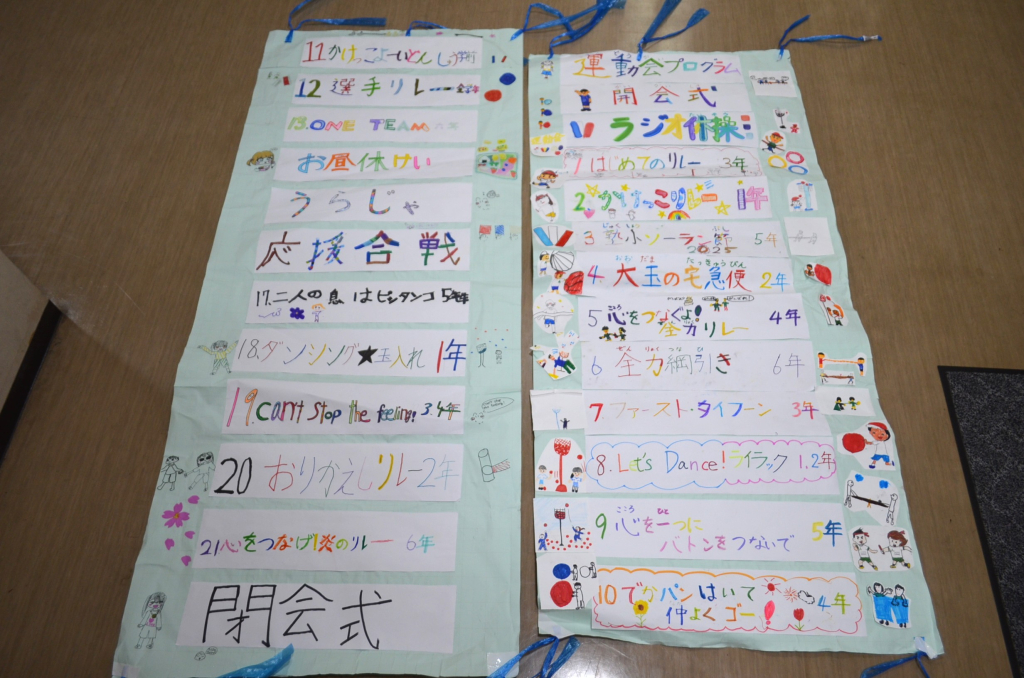 運動会プログラム
開会式
ラジオ体操
1 はじめてのリレー 3年
2. かけっこリレー 1年
3 塾小ソーラン節 5年
2025
おお だま たっきゅうびん
4 大玉の宅急便 2年
こころ
5 心をつなぐよ!
全力リレー 4年
ぜん りょく つな ひ
6 全力綱引き 6年
7 ファースト・タイフーン 3年
8. Let's Dance! ライラック 1.2年
こころ ひと
9 心を一つに
バトンをつないで 5年
10 でかパンはいて
仲よくゴー! 4年
11 かけっこよーいどん
12 選手リレー
13. ONE TEAM
お昼休けい
うらじゃ
応援合戦
17. 二人の息はピッタンコ 5年
18. ダンシング★玉入れ 1年
19 can't stop the feeling! 3.4年
20 おりかえしリレー 2年
21 心をつなげ!炎のリレー 6年
閉会式